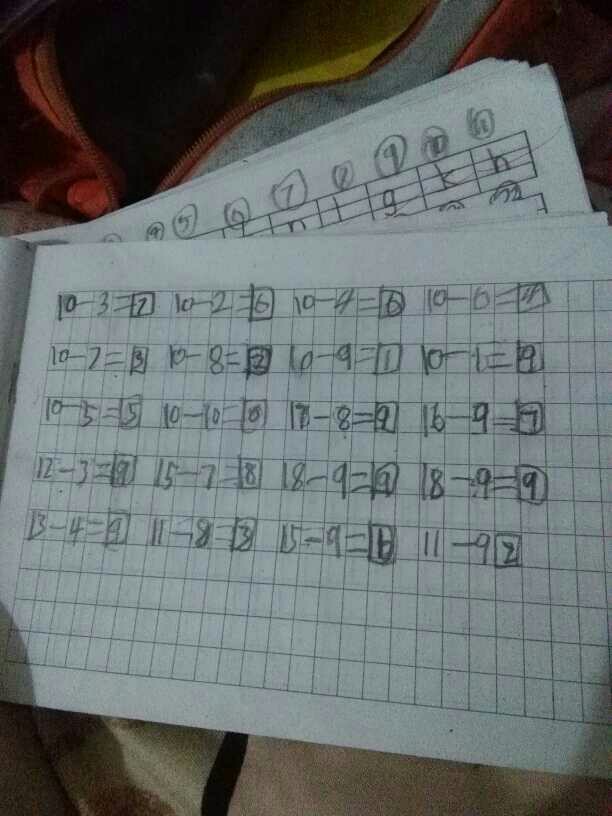 ⑤ ⑥ ⑦ ⑧ ⑨ ⑩ ⑪
g k h
10-3=7 10-2=6 10-4=6 10-6=4
10-7=3 10-8=2 10-9=1 10-1=9
10-5=5 10-10=0 17-8=9 16-9=7
12-3=9 15-7=8 18-9=9 18-9=9
13-4=9 11-8=3 15-9= 11-9 2